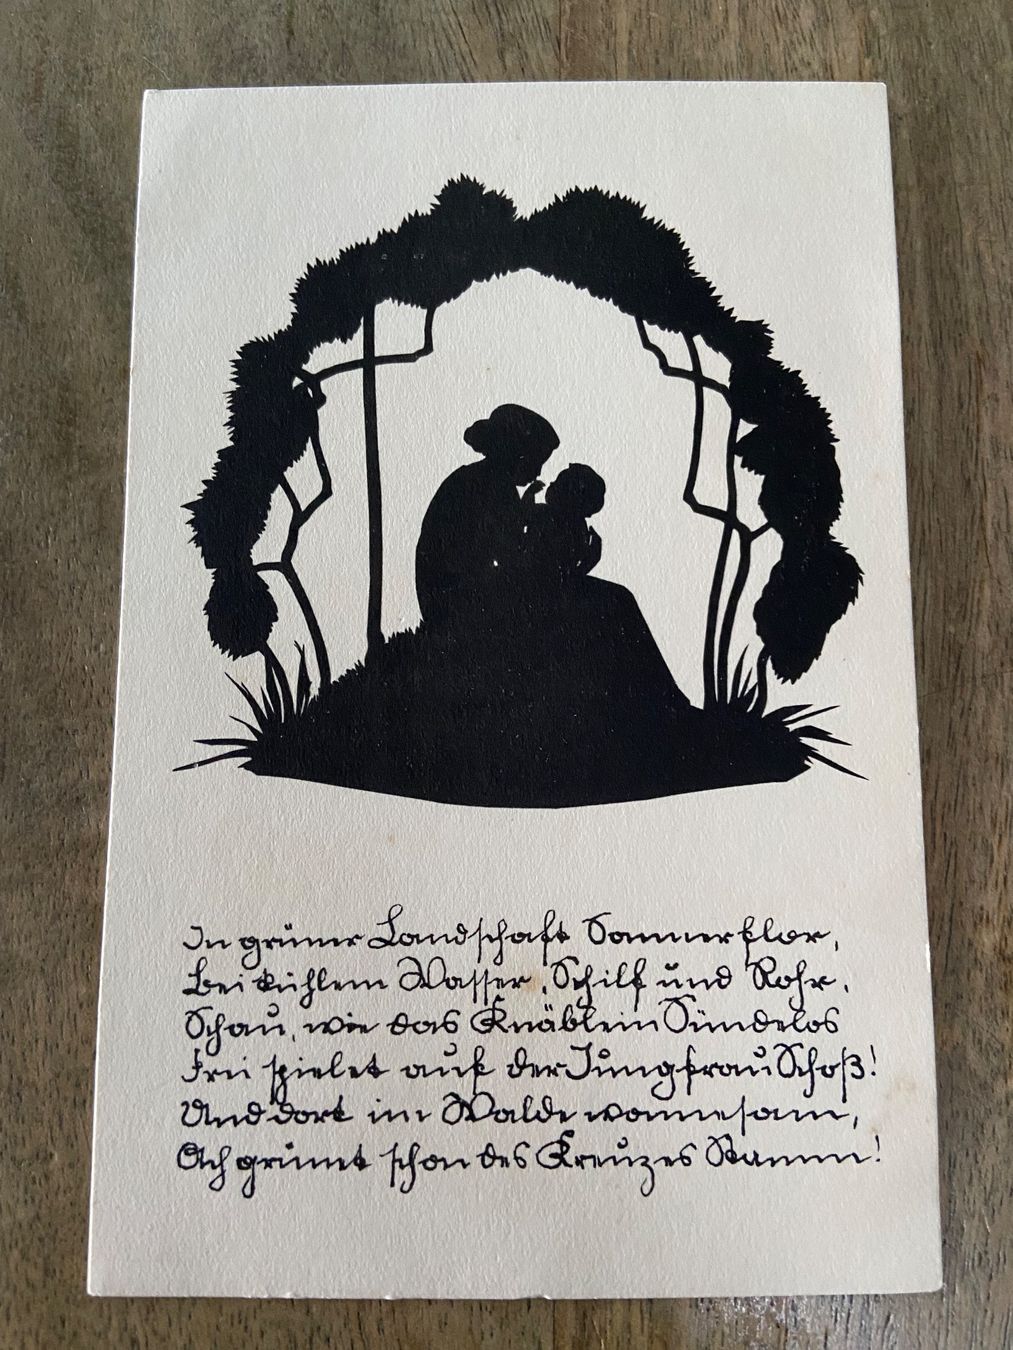 In grüner Landschaft Sommerflor,
Bei kühlem Wasser, Schilf und Rohr,
Schau, wie das Knäblein Sündelos
Frei spielet auf der Jungfrau Schoß!
Und dort im Walde wonnesam,
Ach grünet schon des Kreuzes Stamm!